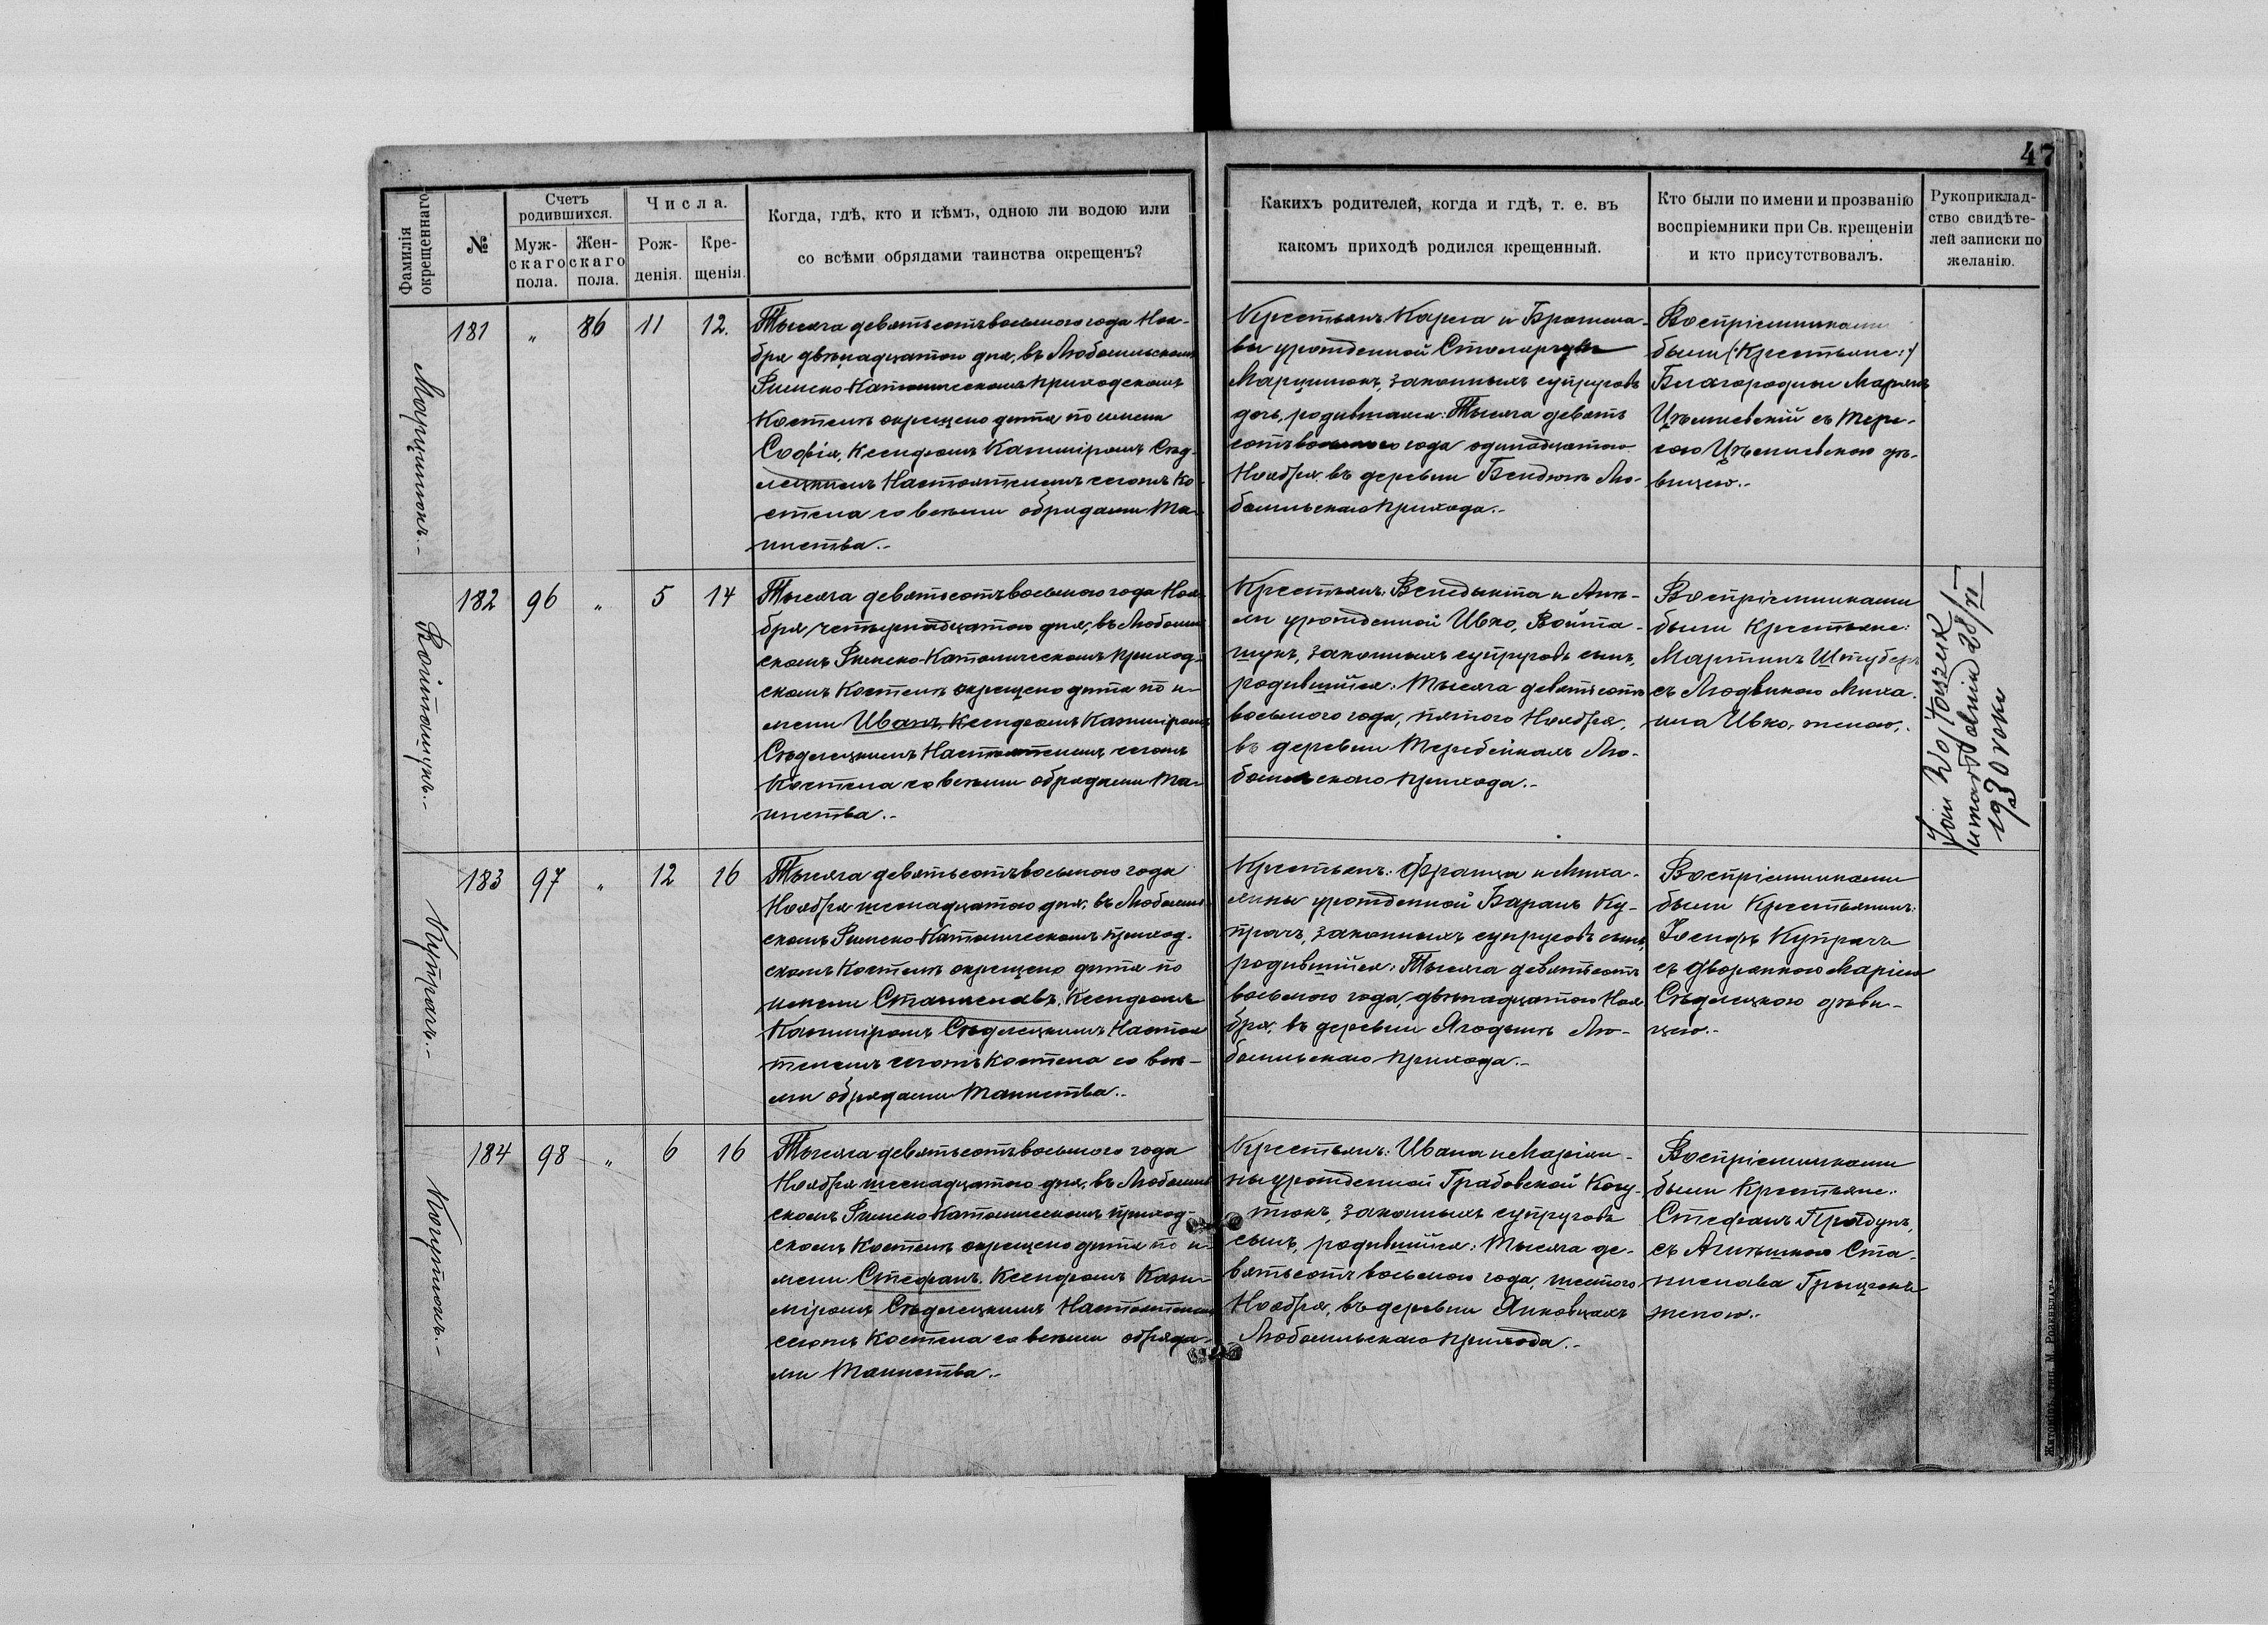 47
Фамилія окрещеннаго
№
Счетъ родившихся.
Муж-скаго пола.
Жен-скаго пола.
Числа.
Рож-денія.
Кре-щенія.
Когда, гдѣ, кто и кѣмъ, одною ли водою или
со всѣми обрядами таинства окрещенъ?
Какихъ родителей, когда и гдѣ, т. е. въ
какомъ приходѣ родился крещенный.
Кто были по имени и прозванію
воспріемники при Св. крещеніи
и кто присутствовалъ.
Рукоприклад-
ство свидѣте-
лей записки по
желанію.
Марцинюкъ.-
181 " 86 11 12.
Тысяча девятьсотъ восьмого года Ноя-
бря двѣнадцатого дня, въ Любомльскомъ
Римско-Католическомъ приходскомъ
Костелѣ окрещено дитя по имени
Софія, Ксендзомъ Казиміромъ Сѣд-
лецкимъ Настоятелемъ сегожъ Ко-
стела со всѣми обрядами Та-
инства.-
Крестьянъ: Карла и Бронисла-
вы урожденной Столярчукъ
Марцинюкъ, законныхъ супруговъ
дочь, родившаяся: Тысяча девять
сотъ восьмого года одинадцатого
Ноября, въ деревни Бендюгѣ Лю-
бомльскаго прихода.-
Воспріемниками
были (:Крестьяне:)
Благородные Марьянъ
Цѣшевскій съ Тере-
сою дѣ-
вицею.-
Войтошукъ.-
182 96 " 5 14
Тысяча девятьсотъ восьмого года Ноя-
бря четырнадцатого дня, въ Любомль-
скомъ Римско-Католическомъ приход-
скомъ Костелѣ окрещено дитя по и-
мени Иванъ, Ксендзомъ Казиміромъ
Сѣдлецкимъ Настоятелемъ сегожъ
Костела со всѣми обрядами Та-
инства.-
Крестьянъ: Венедыкта и Ане-
ли урожденной Ивко, Войта-
шукъ, законныхъ супруговъ сынъ,
родившійся: Тысяча девятьсотъ
восьмого года, пятого Ноября,
въ деревни Теребейкахъ Лю-
бомльскаго прихода.-
Воспріемниками
были Крестьяне:
Мартинъ Штуберъ
съ Людвикою Миха-
ила Ивко, женою.-
Jan Wojtoszuk
umarł dnia 28/VI
1930 roku
Купрачъ.-
183 97 " 12 16
Тысяча девятьсотъ восьмого года
Ноября шеснадцатого дня, въ Любомль-
скомъ Римско-Католическомъ приход-
скомъ Костелѣ окрещено дитя по
имени Станиславъ, Ксендзомъ
Казиміромъ Сѣдлецкимъ Настоя-
телемъ сегожъ Костела со всѣ-
ми обрядами Таинства.-
Крестьянъ: Франца и Миха-
лины урожденной Баранъ Ку-
прачъ, законныхъ супруговъ сынъ,
родившійся: Тысяча девятьсотъ
восьмого года, двѣнадцатого Ноя-
бря, въ деревни Ягодынѣ Лю-
бомльскаго прихода.-
Воспріемниками
были Крестьянинъ:
Іосифъ Купрачъ
съ дворянкою Маріею
Сѣдлецкою дѣви-
цею.-
Когутюкъ.-
184 98 " 6 16
Тысяча девятьсотъ восьмого года
Ноября шеснадцатого дня, въ Любомль-
скомъ Римско-Католическомъ приход-
скомъ Костелѣ окрещено дитя по и-
мени Стефанъ, Ксендзомъ Кази-
міромъ Сѣдлецкимъ Настоятелемъ
сегожъ Костела со всѣми обряда-
ми Таинства.-
Крестьянъ: Ивана и Маріан-
ны урожденной Грабовской Когу-
тюкъ, законныхъ супруговъ
сынъ, родившійся: Тысяча де-
вятьсотъ восьмого года, шестого
Ноября, въ деревни Янковцахъ
Любомльскаго прихода.-
Воспріемниками
были Крестьяне:
Стефанъ
съ Агнѣшкою Ста-
нислава Грыцюкъ
женою.-